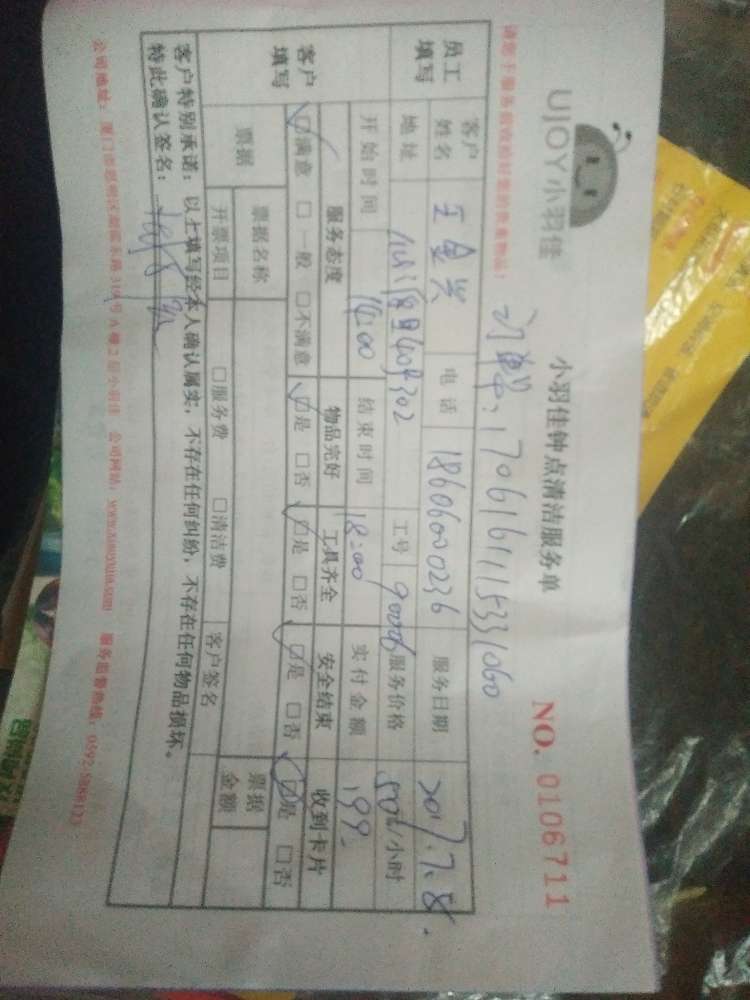 UJOY小羽佳
小羽佳钟点清洁服务单
NO. 0106711
请您于服务前收拾好您的贵重物品!
订单:1706161115331060
员工填写
客户姓名 王金兴 电话 18606000236 服务日期 2017.7.8.
地址 409 302 工号 90006 服务价格 50元/小时
开始时间 14:00 结束时间 18:00 实付金额 199.
客户填写
服务态度 物品完好 工具齐全 安全结束 收到卡片
☑满意 □一般 □不满意 ☑是 □否 ☑是 □否 ☑是 □否 ☑是 □否
票据 票据名称 票据金额
开票项目 □服务费 □清洁费 客户签名
客户特别承诺:以上填写经本人确认属实,不存在任何纠纷,不存在任何物品损坏。
特此确认签名:
公司地址:厦门市思明区湖滨东路319号A幢2层小羽佳 公司网站:www.xiaoyujia.com 服务监督热线:0592-5888123